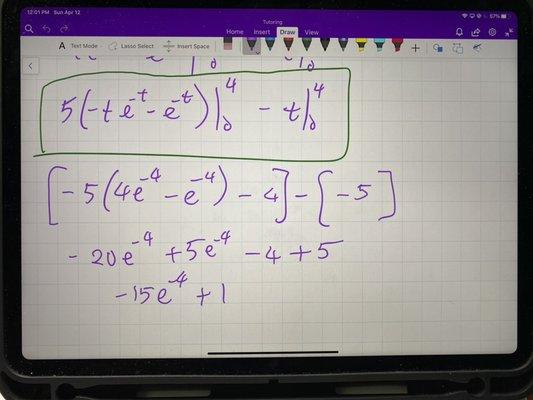 12:01 PM Sun Apr 12
67%
Tutoring
Home Insert Draw View
Text Mode Lasso Select Insert Space
5(-te^-t - e^-t)|₀⁴ - t|₀⁴
[-5(4e^-4 - e^-4) - 4] - [-5]
-20e^-4 + 5e^-4 - 4 + 5
-15e^-4 + 1